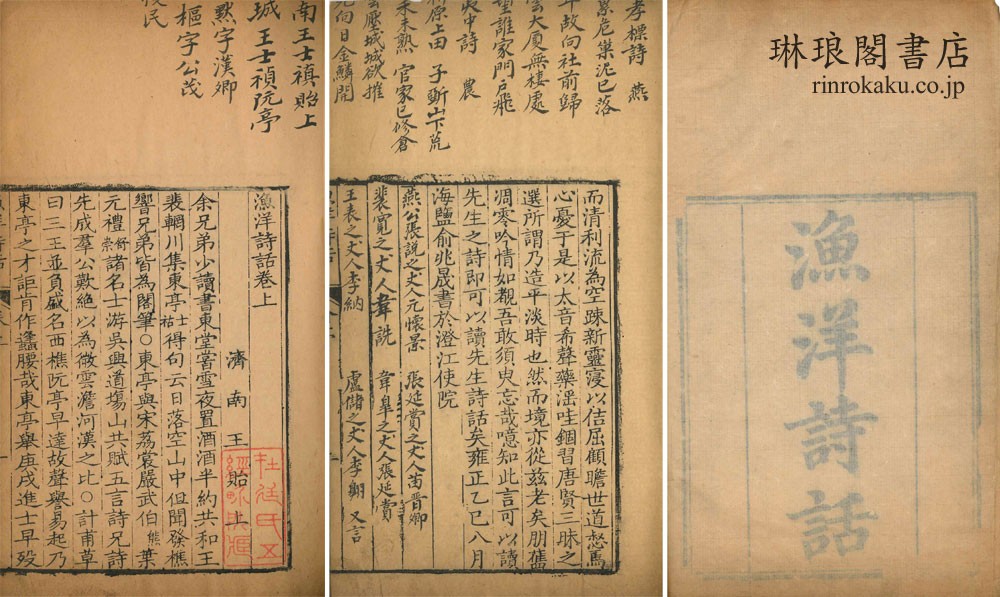 琳琅閣書店
rinrokaku.co.jp
漁洋詩話
孝標詩 燕
危巢泥已落
年故向社前歸
雲大厦無棲處
望誰家門戶飛
夷中詩 農
原上田 子斲山下荒
禾未熟 官家已修倉
雲壓城城欲摧
光向日金鱗開
而清利流為空疎新靈寖以佶屈顧瞻世道惄焉
心憂于是以太音希聲藥淫哇錮習唐賢三昧之
選所謂乃造平淡時也然而境亦從茲老矣朋舊
凋零吟情如覩吾敢須臾忘哉噫知此言可以讀
先生之詩即可以讀先生詩話矣雍正乙巳八月
海鹽俞兆晟書於澄江使院
燕公張說之丈人元懷景 張延賞之丈人苗晉卿
裴寬之丈人韋詵 韋臯之丈人張延賞
王表之丈人李納 盧儲之丈人李翱 又言
南王士禛貽上
城王士禎阮亭
黙字漢卿
樞字公茂
民
漁洋詩話卷上
濟南 王 貽上
余兄弟少讀書東堂嘗雪夜置酒酒半約共和王
裴輞川集東亭士祜得句云日落空山中但聞發樵
響兄弟皆為閣筆○東亭與宋荔裳嚴武伯熊葉
元禮舒崇諸名士游吳興道塲山共賦五言詩兄詩
先成羣公歎絶以為微雲澹河漢之比○計甫草
曰三王並負盛名西樵阮亭早達故聲譽易起乃
東亭之才詎肯作蠭腰哉東亭舉庚戌進士早歿